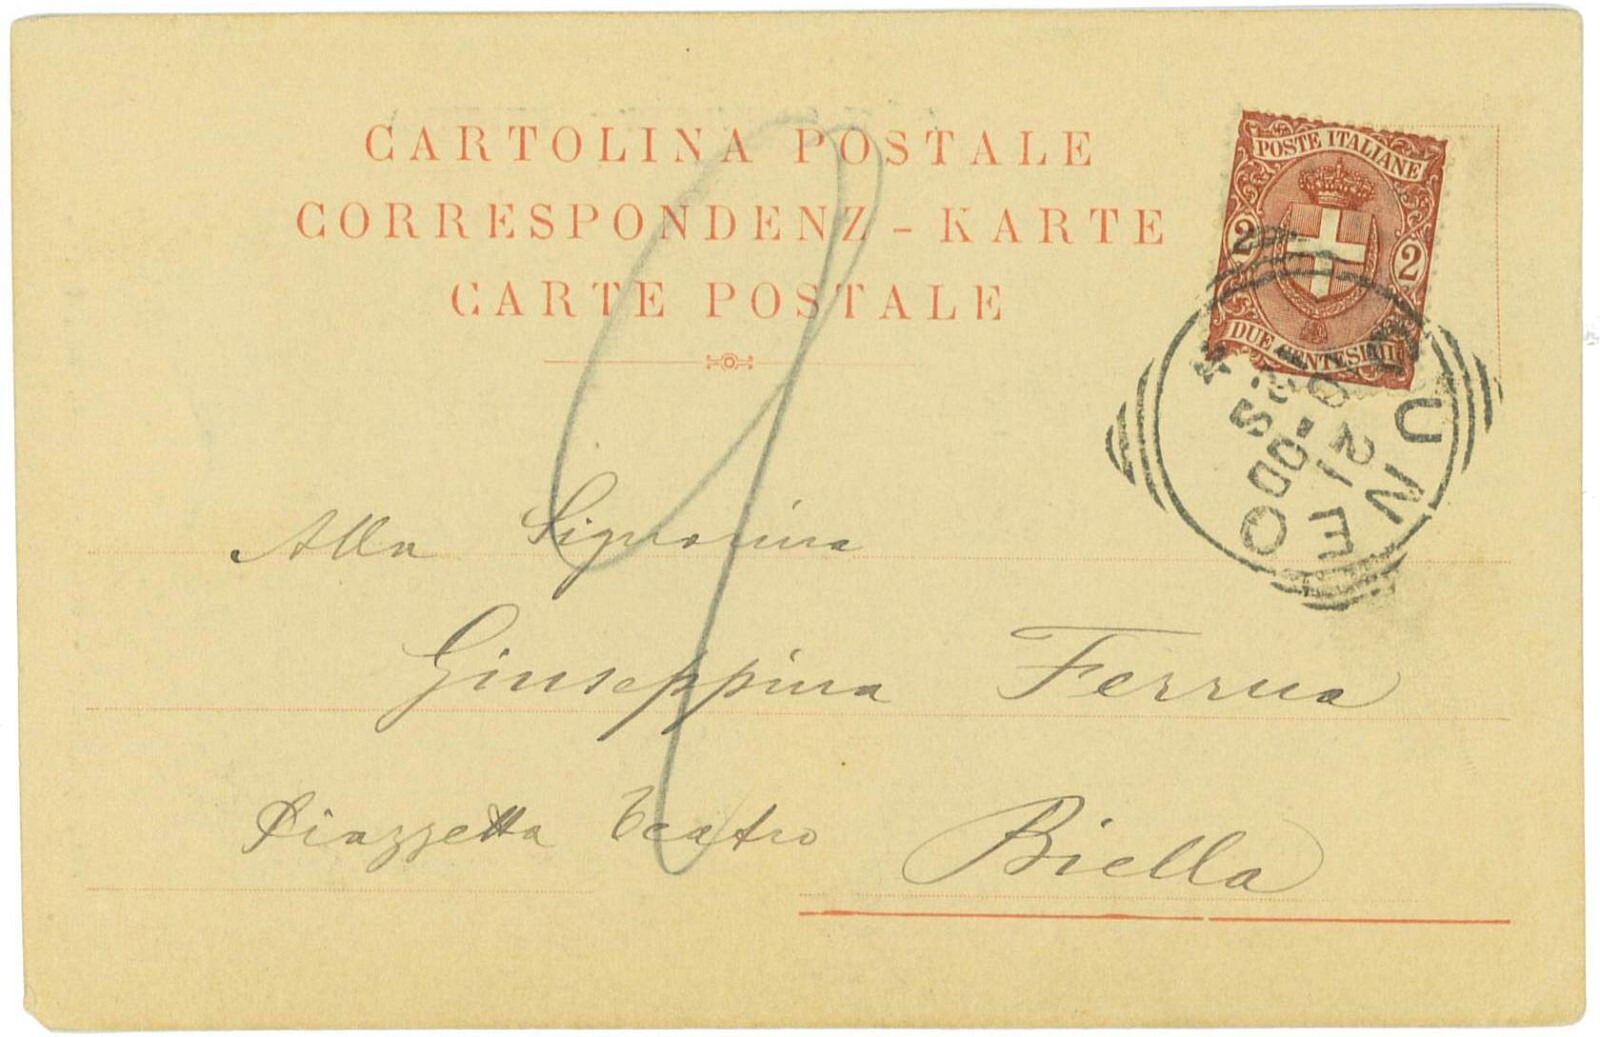 CARTOLINA POSTALE
CORRESPONDENZ-KARTE
CARTE POSTALE
POSTE ITALIANE
2 2
DUE CENTESIMI
CUNEO
Alla Signorina
Giuseppina Ferrua
Piazzetta Teatro Biella